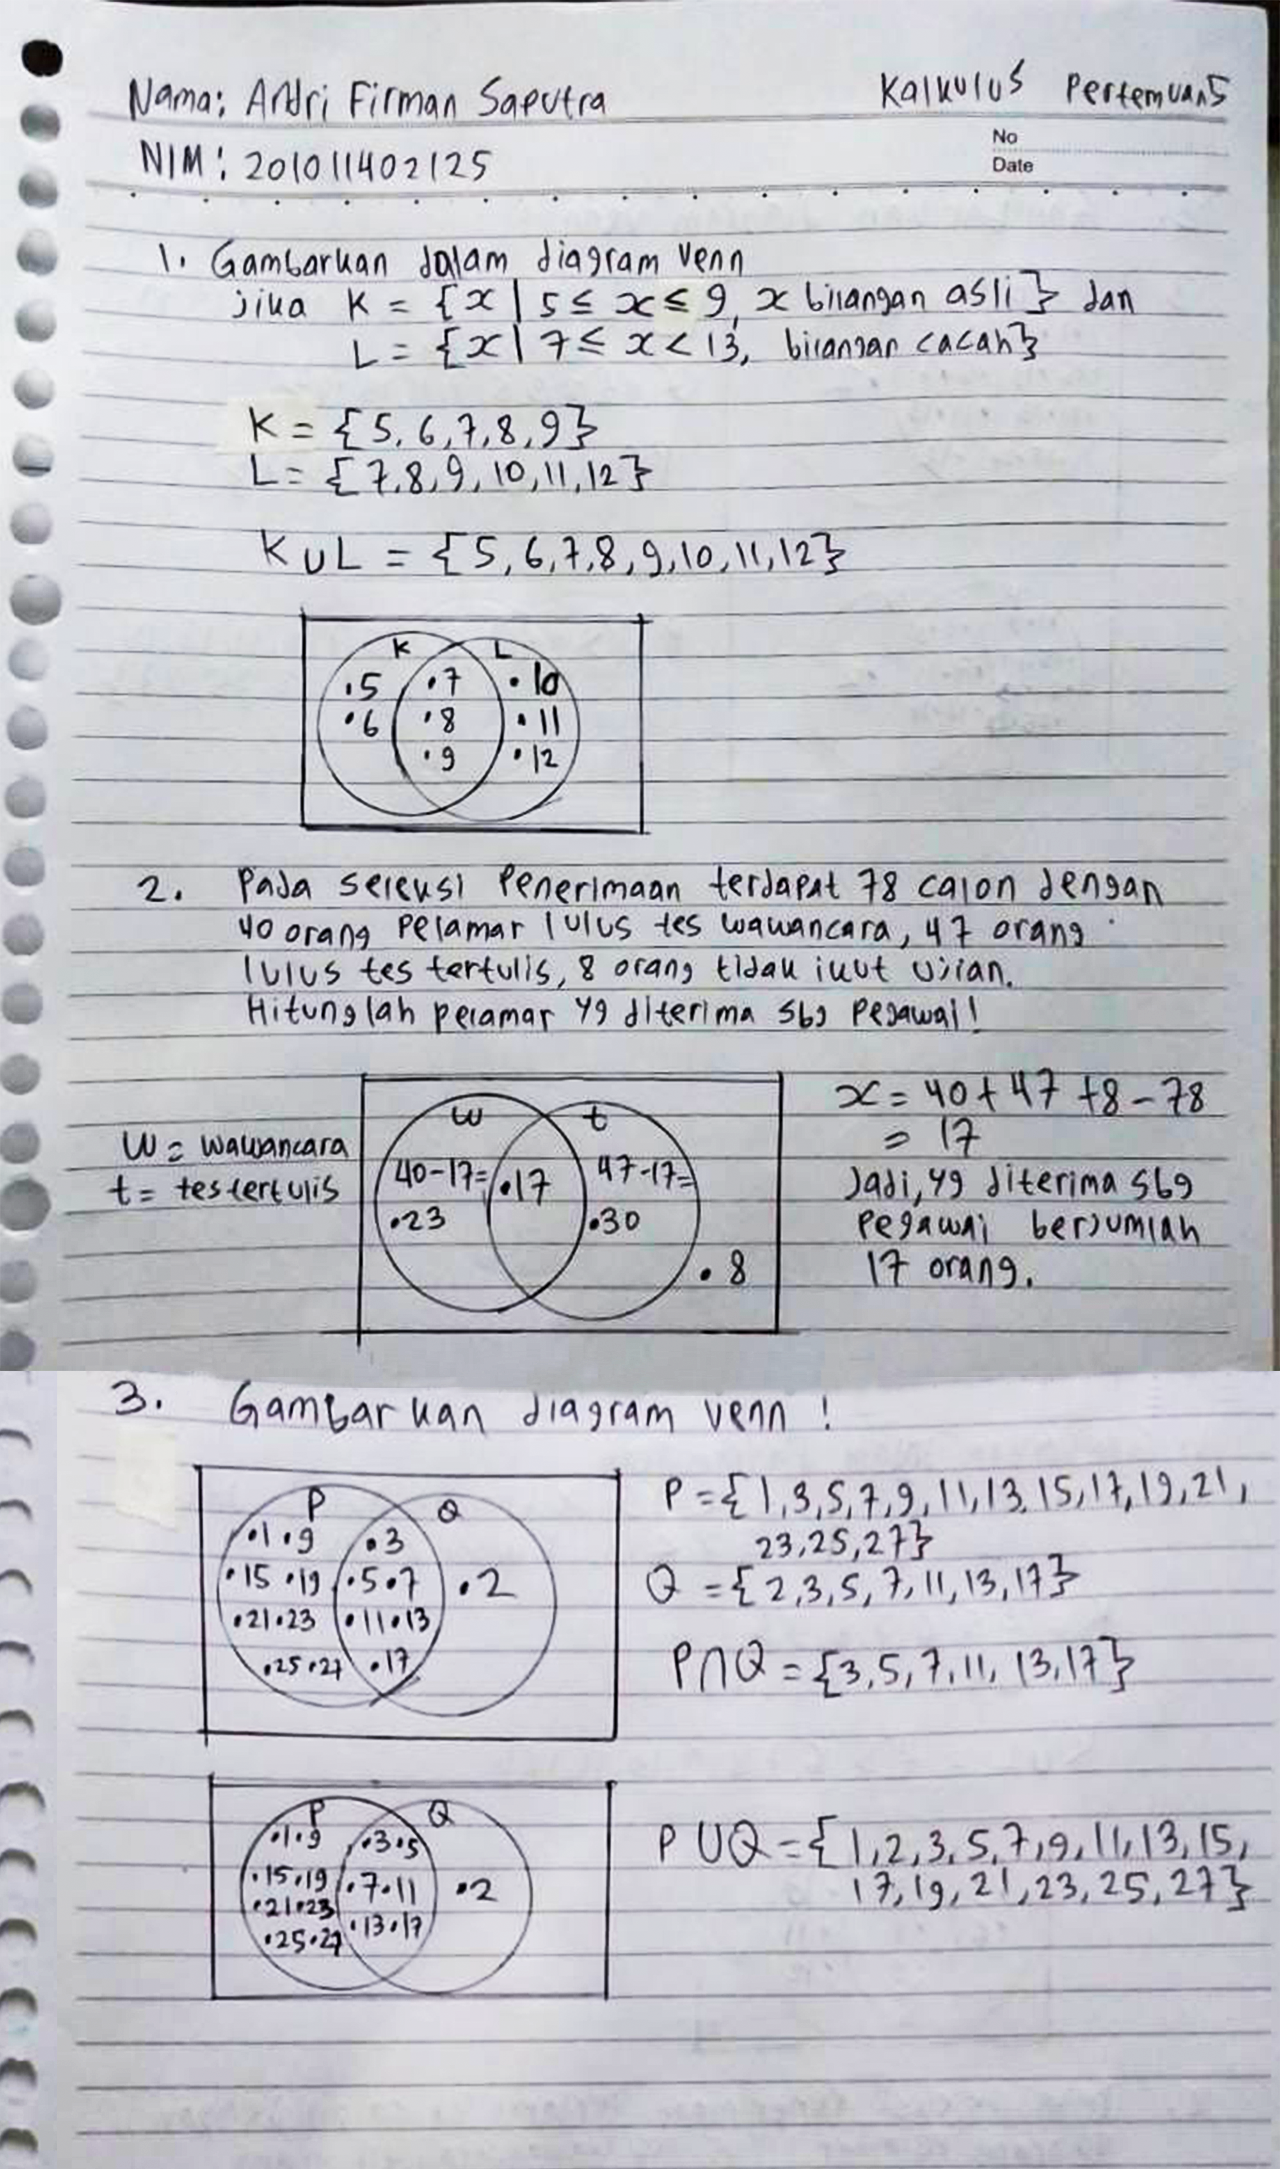 Nama: Andri Firman Saputra
Kalkulus Pertemuan 5
NIM: 201011402125
No
Date
1. Gambarkan dalam diagram venn
jika K = {x | 5 ≤ x ≤ 9, x bilangan asli} dan
L = {x | 7 ≤ x < 13, bilangan cacah}
K = {5, 6, 7, 8, 9}
L = {7, 8, 9, 10, 11, 12}
K ∪ L = {5, 6, 7, 8, 9, 10, 11, 12}
K L
.5 .7 .10
.6 .8 .11
.9 .12
2. Pada seleksi Penerimaan terdapat 78 calon dengan
40 orang Pelamar lulus tes wawancara, 47 orang
lulus tes tertulis, 8 orang tidak ikut ujian.
Hitunglah pelamar yg diterima sbg Pegawai!
W = wawancara
t = tes tertulis
W t
40-17= .17 47-17=
.23 .30
.8
x = 40 + 47 + 8 - 78
= 17
Jadi, yg diterima sbg
Pegawai berjumlah
17 orang.
3. Gambarkan diagram venn !
P Q
.1 .9 .3
.15 .19 .5 .7 .2
.21 .23 .11 .13
.25 .27 .17
P = {1, 3, 5, 7, 9, 11, 13, 15, 17, 19, 21,
23, 25, 27}
Q = {2, 3, 5, 7, 11, 13, 17}
P ∩ Q = {3, 5, 7, 11, 13, 17}
P Q
.1 .9 .3 .5
.15 .19 .7 .11 .2
.21 .23 .13 .17
.25 .27
P ∪ Q = {1, 2, 3, 5, 7, 9, 11, 13, 15,
17, 19, 21, 23, 25, 27}